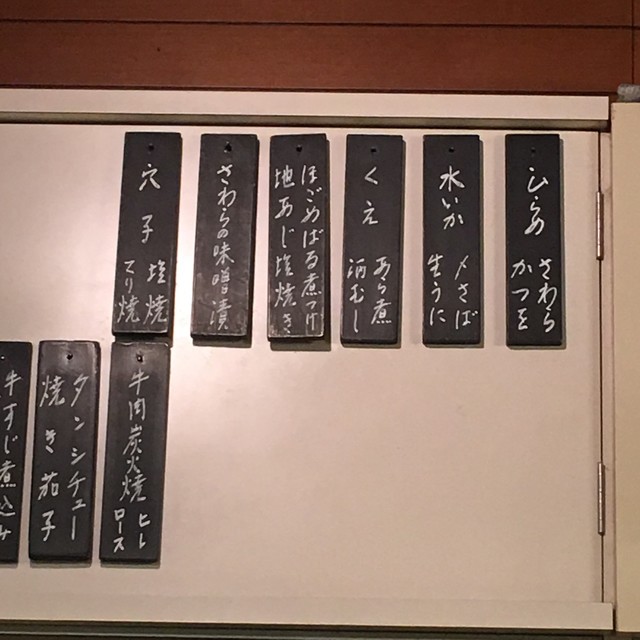 ひらめ
さわら
かつを
水いか
〆さば
生うに
くえ
あら煮
酒むし
ほごめばる煮つけ
地あじ塩焼き
さわらの味噌漬
穴子
塩焼
てり焼
牛肉炭火焼
ヒレ
ロース
タンシチュー
焼き茄子
牛すじ煮込み